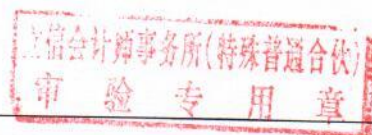 立信会计师事务所(特殊普通合伙)
审验专用章